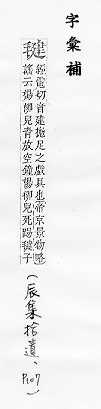 字彙補
毽
經電切音建拋足之戲具也帝京景物略
謠云楊柳兒青放空鐘楊柳兒死踢毽子
(辰集拾遺、P107)